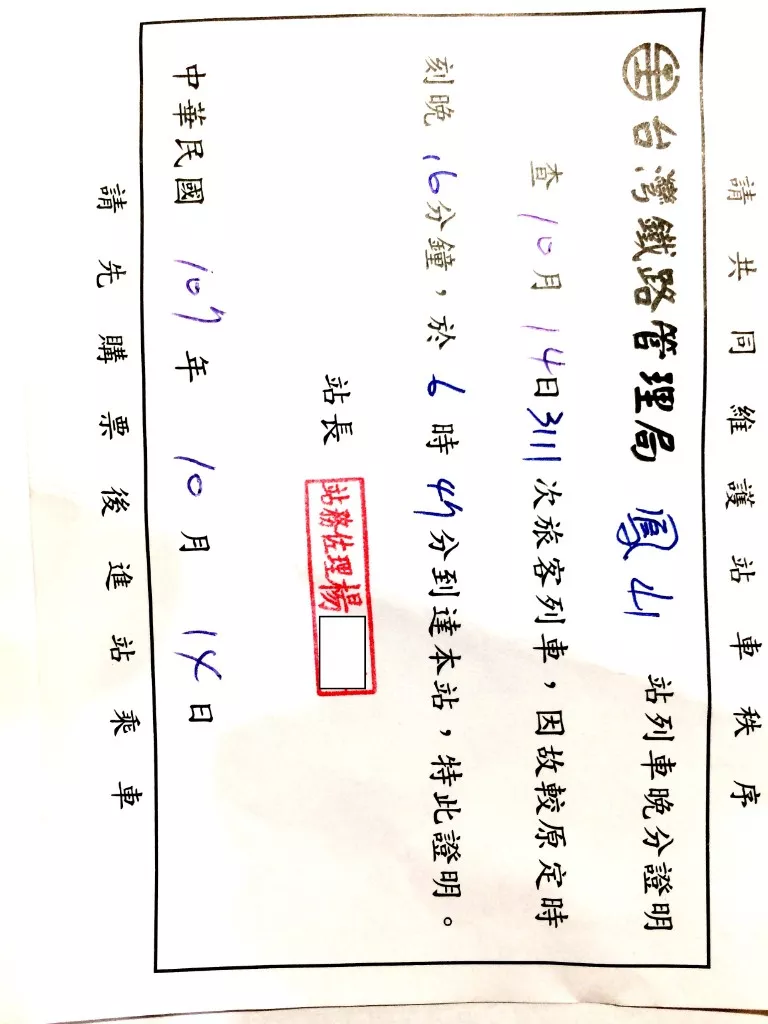 請共同維護站車秩序
台灣鐵路管理局 鳳山 站列車晚分證明
查10月14日3111次旅客列車，因故較原定時
刻晚16分鐘，於6時47分到達本站，特此證明。
站長 站務佐理楊
中華民國 107年 10月 14日
請先購票後進站乘車